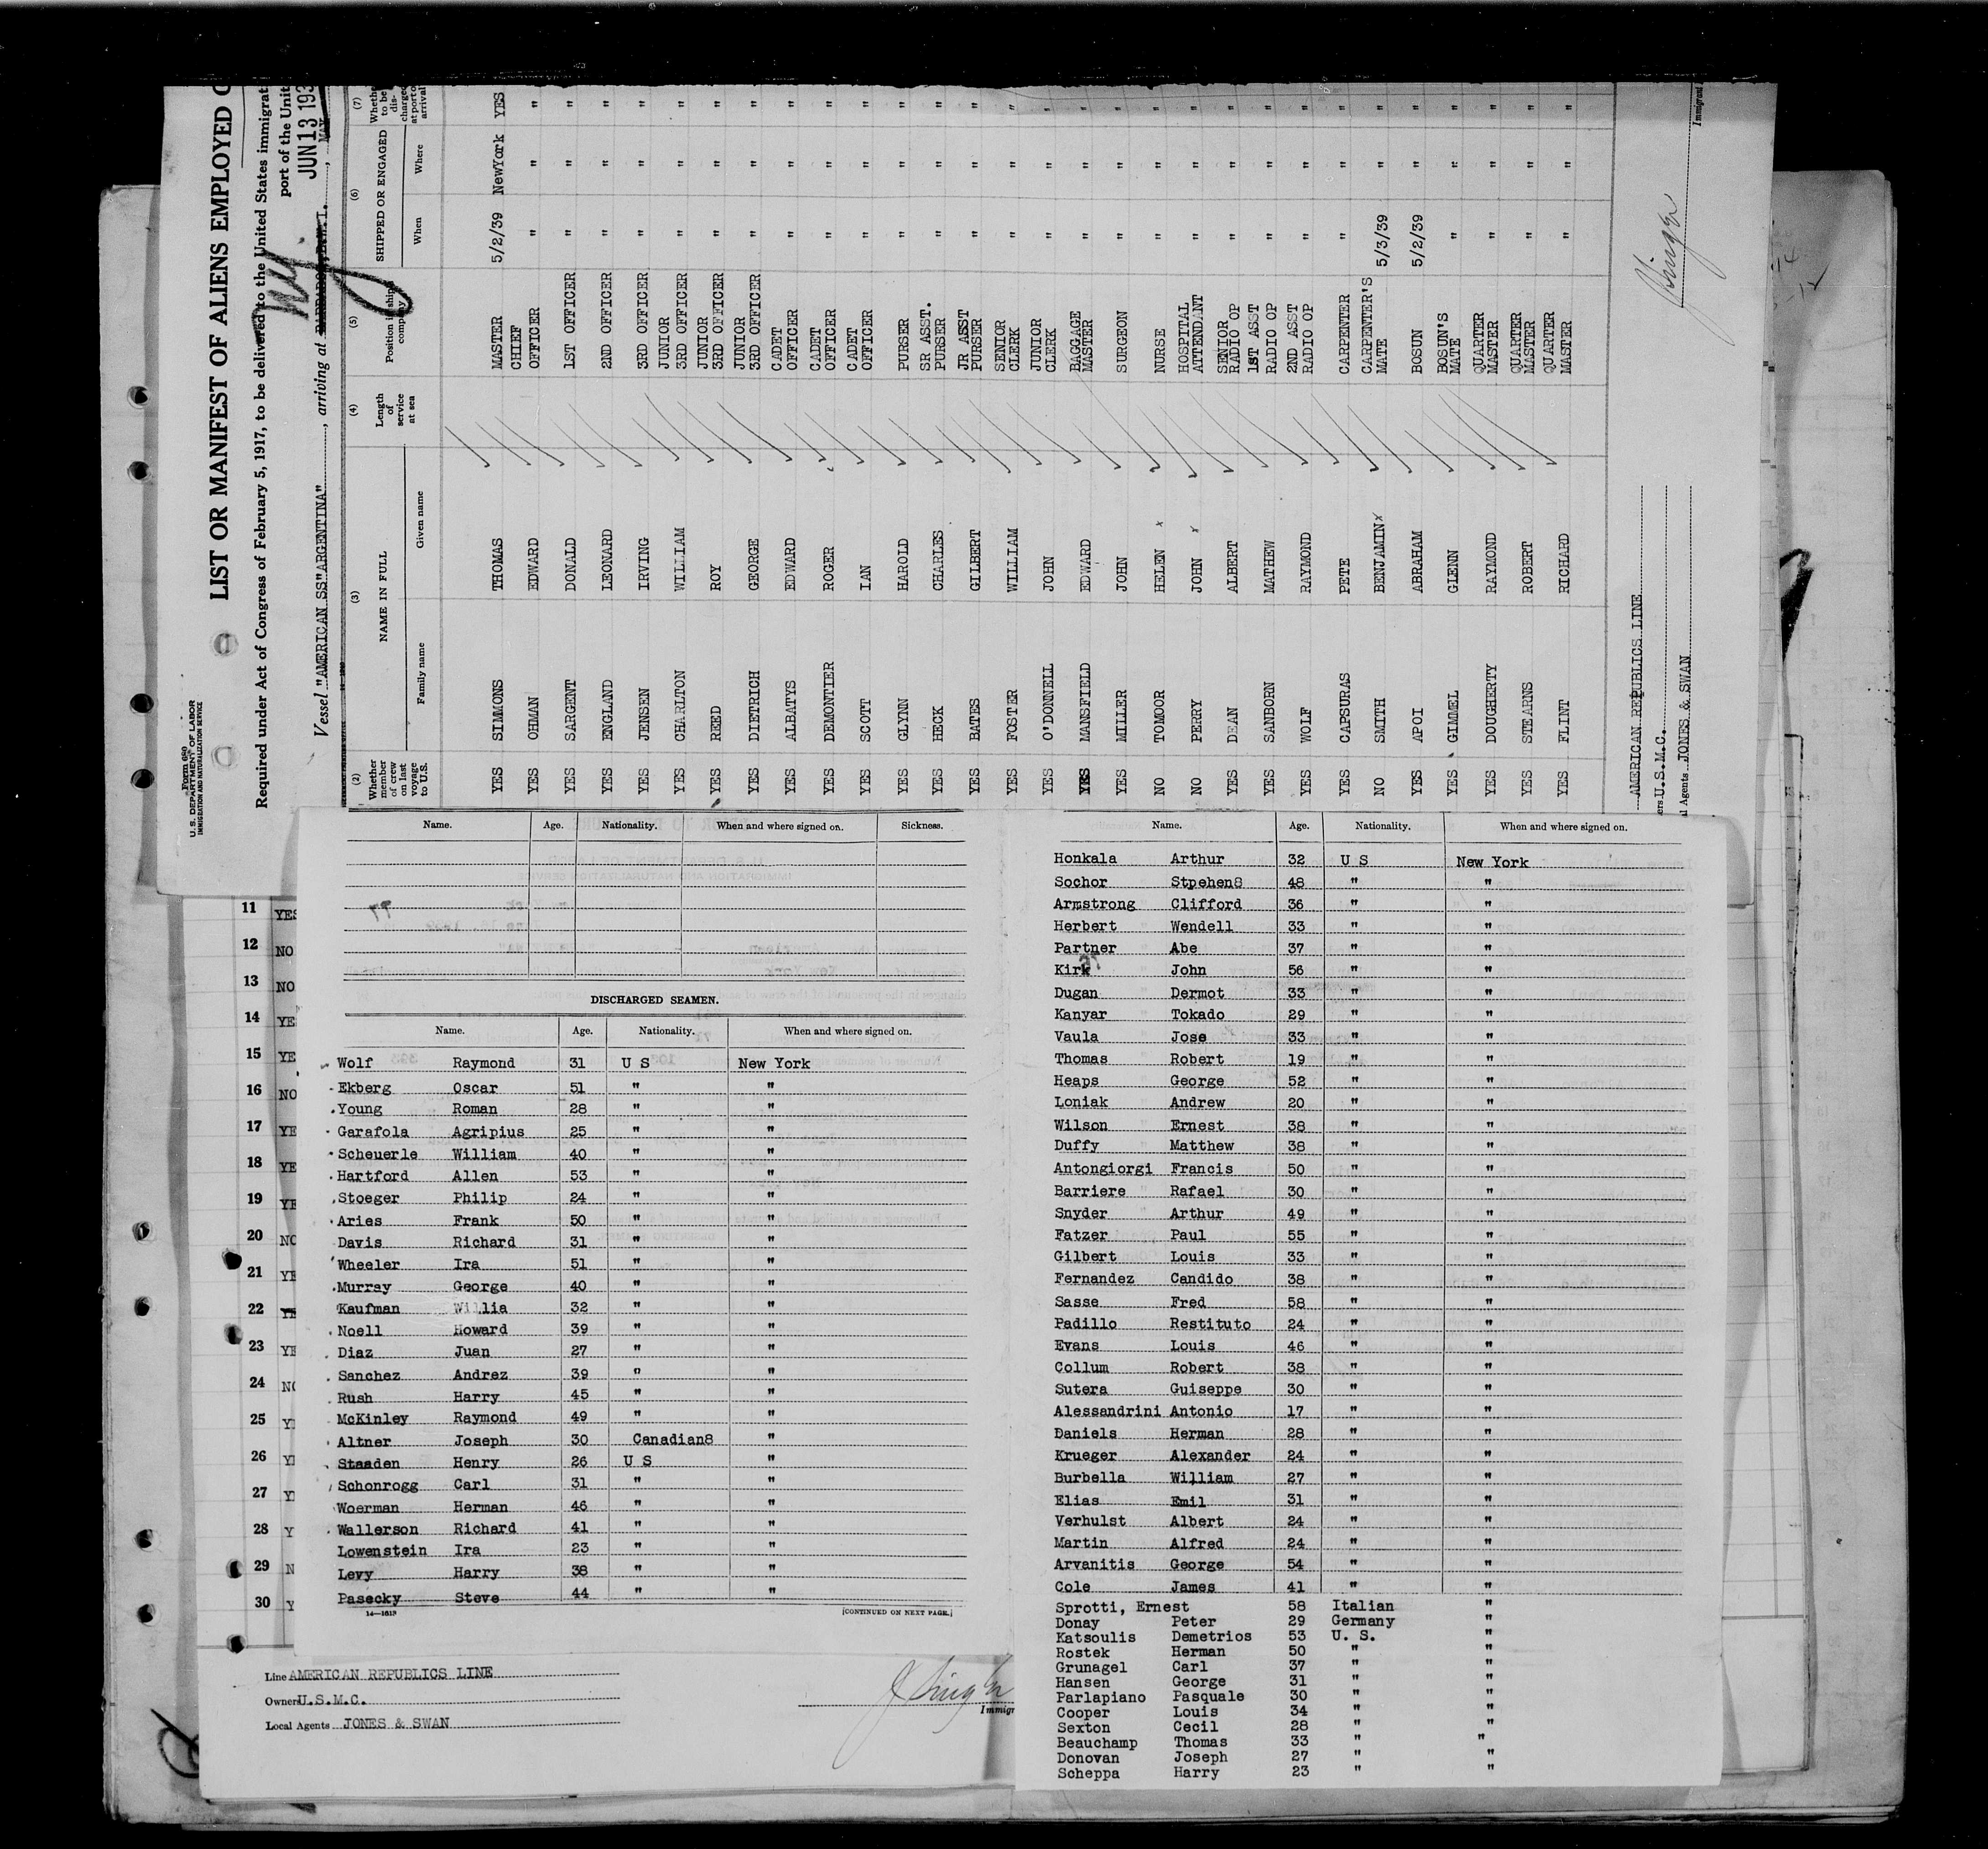 Form 680
U. S. DEPARTMENT OF LABOR
IMMIGRATION AND NATURALIZATION SERVICE
LIST OR MANIFEST OF ALIENS EMPLOYED
Required under Act of Congress of February 5, 1917, to be delivered to the United States immigrat
port of the Unit
JUN 13 193
Vessel "AMERICAN SS"ARGENTINA", arriving at
(2) (3) (4) (5) (6) (7)
Whether member of crew on last voyage to U.S. NAME IN FULL Length of service at sea Position in ship's company SHIPPED OR ENGAGED Whether to be discharged at port of arrival
Family name Given name When Where
YES SIMMONS THOMAS MASTER 5/2/39 NewYork YES
YES OHMAN EDWARD CHIEF OFFICER " " "
YES SARGENT DONALD 1ST OFFICER " " "
YES ENGLAND LEONARD 2ND OFFICER " " "
YES JENSEN IRVING 3RD OFFICER " " "
YES CHARLTON WILLIAM JUNIOR 3RD OFFICER " " "
YES REED ROY JUNIOR 3RD OFFICER " " "
YES DIETRICH GEORGE JUNIOR 3RD OFFICER " " "
YES ALBATYS EDWARD CADET OFFICER " " "
YES DEMONTIER ROGER CADET OFFICER " " "
YES SCOTT IAN CADET OFFICER " " "
YES GLYNN HAROLD PURSER " " "
YES HECK CHARLES SR ASST. PURSER " " "
YES BATES GILBERT JR ASST PURSER " " "
YES FOSTER WILLIAM SENIOR CLERK " " "
YES O'DONNELL JOHN JUNIOR CLERK " " "
YES MANSFIELD EDWARD BAGGAGE MASTER " " "
YES MILLER JOHN SURGEON " " "
NO TOMOOR HELEN x NURSE " " "
NO PERRY JOHN x HOSPITAL ATTENDANT " " "
YES DEAN ALBERT SENIOR RADIO OP " " "
YES SANBORN MATHEW 1ST ASST RADIO OP " " "
YES WOLF RAYMOND 2ND ASST RADIO OP " " "
YES CAPSURAS PETE CARPENTER " " "
NO SMITH BENJAMIN x CARPENTER'S MATE 5/3/39 " "
YES APOI ABRAHAM BOSUN 5/2/39 " "
YES GIMMEL GLENN BOSUN'S MATE " " "
YES DOUGHERTY RAYMOND QUARTER MASTER " " "
YES STEARNS ROBERT QUARTER MASTER " " "
YES FLINT RICHARD QUARTER MASTER " " "
AMERICAN REPUBLICS LINE
ers U.S.M.C.
l Agents JONES & SWAN
Immigrant
Name. Age. Nationality. When and where signed on. Sickness.
DISCHARGED SEAMEN.
Name. Age. Nationality. When and where signed on.
Wolf Raymond 31 U S New York
Ekberg Oscar 51 " "
Young Roman 28 " "
Garafola Agripius 25 " "
Scheuerle William 40 " "
Hartford Allen 53 " "
Stoeger Philip 24 " "
Aries Frank 50 " "
Davis Richard 31 " "
Wheeler Ira 51 " "
Murray George 40 " "
Kaufman Willia 32 " "
Noell Howard 39 " "
Diaz Juan 27 " "
Sanchez Andrez 39 " "
Rush Harry 45 " "
McKinley Raymond 49 " "
Altner Joseph 30 Canadian8 "
Staaden Henry 26 U S "
Schonrogg Carl 31 " "
Woerman Herman 46 " "
Wallerson Richard 41 " "
Lowenstein Ira 23 " "
Levy Harry 38 " "
Pasecky Steve 44 " "
14—1613
[CONTINUED ON NEXT PAGE.]
Name. Age. Nationality. When and where signed on.
Honkala Arthur 32 U S New York
Sochor Stpehen8 48 " "
Armstrong Clifford 36 " "
Herbert Wendell 33 " "
Partner Abe 37 " "
Kirk John 56 " "
Dugan Dermot 33 " "
Kanyar Tokado 29 " "
Vaula Jose 33 " "
Thomas Robert 19 " "
Heaps George 52 " "
Loniak Andrew 20 " "
Wilson Ernest 38 " "
Duffy Matthew 38 " "
Antongiorgi Francis 50 " "
Barriere Rafael 30 " "
Snyder Arthur 49 " "
Fatzer Paul 55 " "
Gilbert Louis 33 " "
Fernandez Candido 38 " "
Sasse Fred 58 " "
Padillo Restituto 24 " "
Evans Louis 46 " "
Collum Robert 38 " "
Sutera Guiseppe 30 " "
Alessandrini Antonio 17 " "
Daniels Herman 28 " "
Krueger Alexander 24 " "
Burbella William 27 " "
Elias Emil 31 " "
Verhulst Albert 24 " "
Martin Alfred 24 " "
Arvanitis George 54 " "
Cole James 41 " "
Sprotti, Ernest 58 Italian "
Donay Peter 29 Germany "
Katsoulis Demetrios 53 U. S. "
Rostek Herman 50 " "
Grunagel Carl 37 " "
Hansen George 31 " "
Parlapiano Pasquale 30 " "
Cooper Louis 34 " "
Sexton Cecil 28 " "
Beauchamp Thomas 33 " "
Donovan Joseph 27 " "
Scheppa Harry 23 " "
11 YES
12 NO
13 NO
14 YE
15 YE
16 NO
17 YE
18 YE
19 YE
20 NO
21 YE
22 YE
23 YE
24 NO
25 Y
26 Y
27 Y
28 Y
29 N
30 Y
Line AMERICAN REPUBLICS LINE
Owners U.S.M.C.
Local Agents JONES & SWAN
Immigr